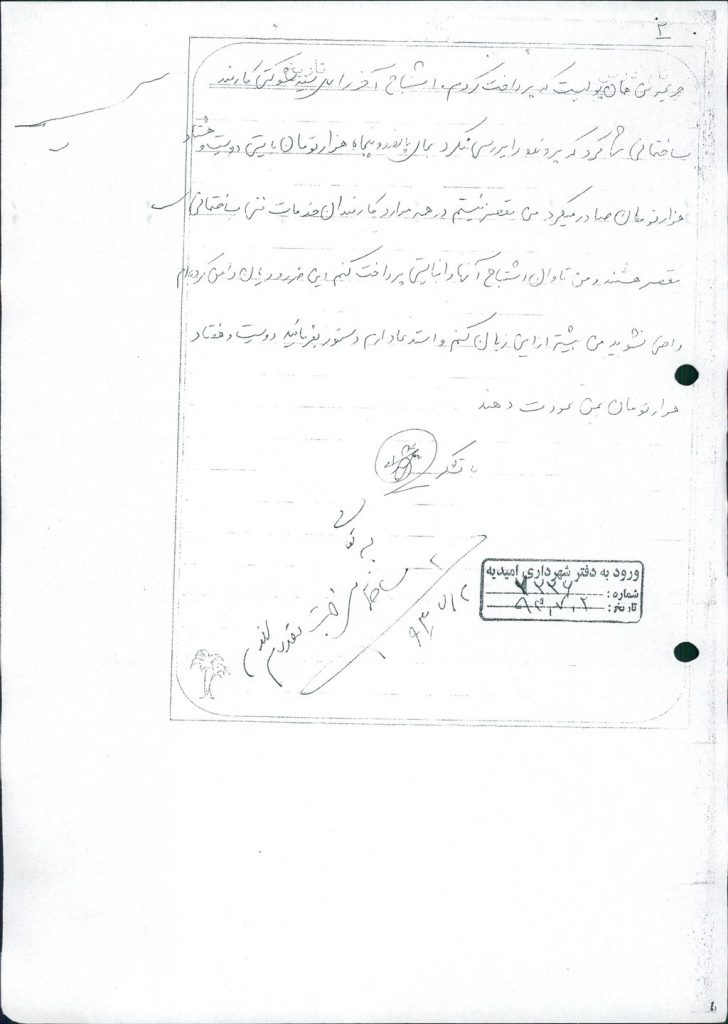 ۲
جریمه من همان پولیست که پرداخت کردم. اشتباه آخر را کارمند
ساختمانی شما کرد که پرونده را بررسی نکرد بجای پانصد و پنجاه هزار تومان بایستی دویست و هشتاد
هزار تومان صادر میکرد من مقصر نیستم در همه موارد کارمندان خدمات فنی ساختمانی
مقصر هستند و من تاوان اشتباه آنها را نبایستی پرداخت کنم این ضرر و زیان را من کرده‌ام
راضی نشوید من بیشتر از این زیان کنم و استدعا دارم دستور بفرمائید دویست و هفتاد
هزار تومان بمن عودت دهند
با تشکر
ورود به دفتر شهرداری امیدیه
شماره: ۷۲۳۶
تاریخ: ۹۳,۷,۲
۹۳/۷/۲